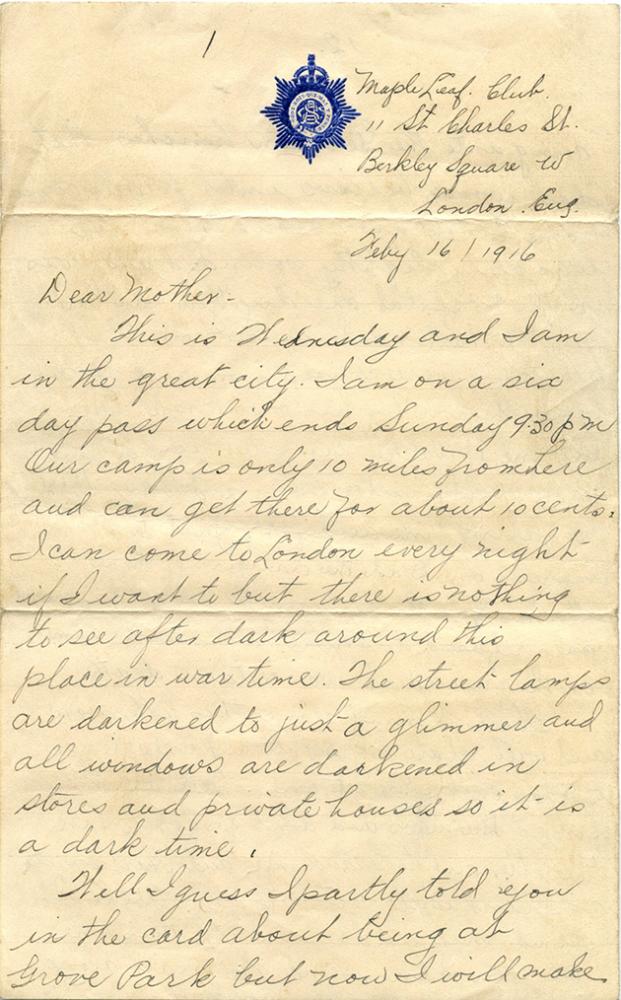 1
Maple Leaf. Club.
11 St Charles St.
Berkley Square W
London. Eng.
Feby 16/1916
Dear Mother -
This is Wednesday and I am
in the great city. I am on a six
day pass which ends Sunday 9.30 pm
Our camp is only 10 miles from here
and can get there for about 10 cents.
I can come to London every night
if I want to but there is nothing
to see after dark around this
place in war time. The street lamps
are darkened to just a glimmer and
all windows are darkened in
stores and private houses so it is
a dark time.
Well I guess I partly told you
in the card about being at
Grove Park but now I will make